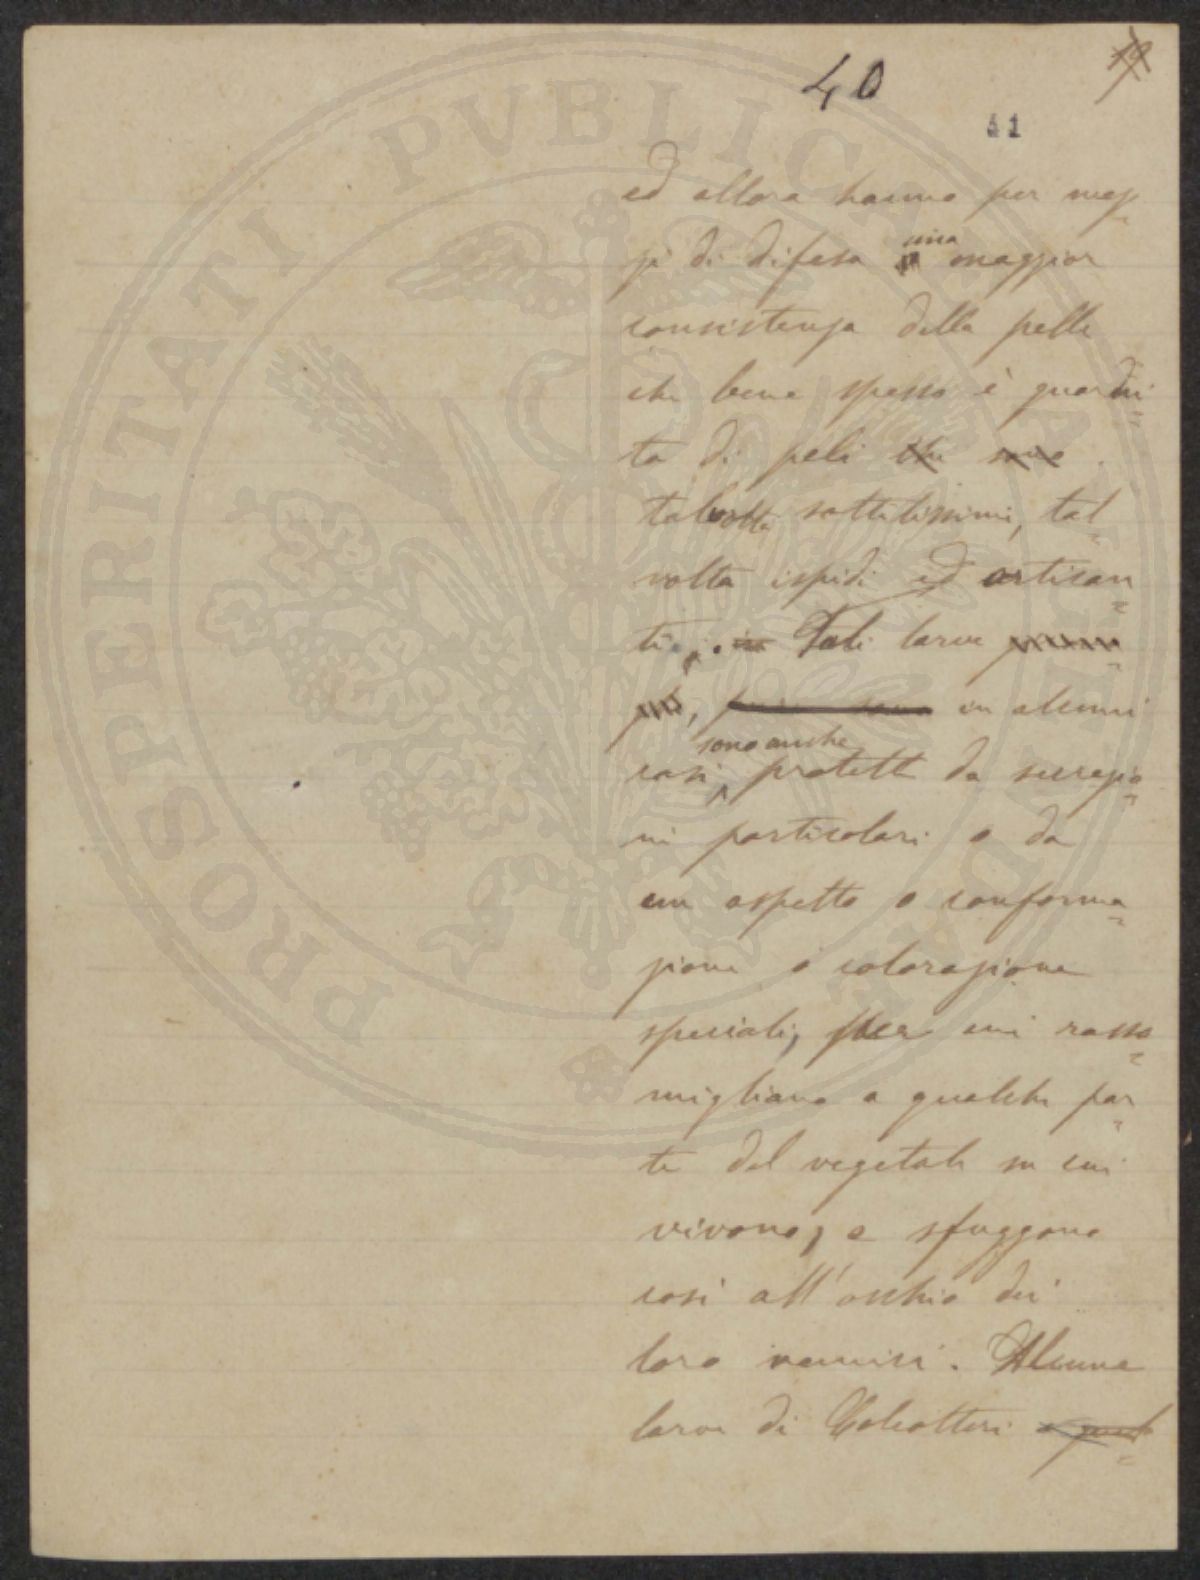 40
19
41
ed allora hanno per mez-
zi di difesa una maggior
consistenza della pelle
che bene spesso è guarni-
ta di peli che sono
talvolta sottilissimi, tal-
volta ispidi ed ortican-
ti. Tali larve
in alcuni
sono anche
casi, protette da secrezio-
ni particolari o da
un aspetto o conforma-
zione o colorazione
speciali, per cui rasso-
migliano a qualche par-
te del vegetale su cui
vivono, e sfuggono
così all'occhio dei
loro nemici. Alcune
larve di Coleotteri
PROSPERITATI PVBLICAE AVGENDAE